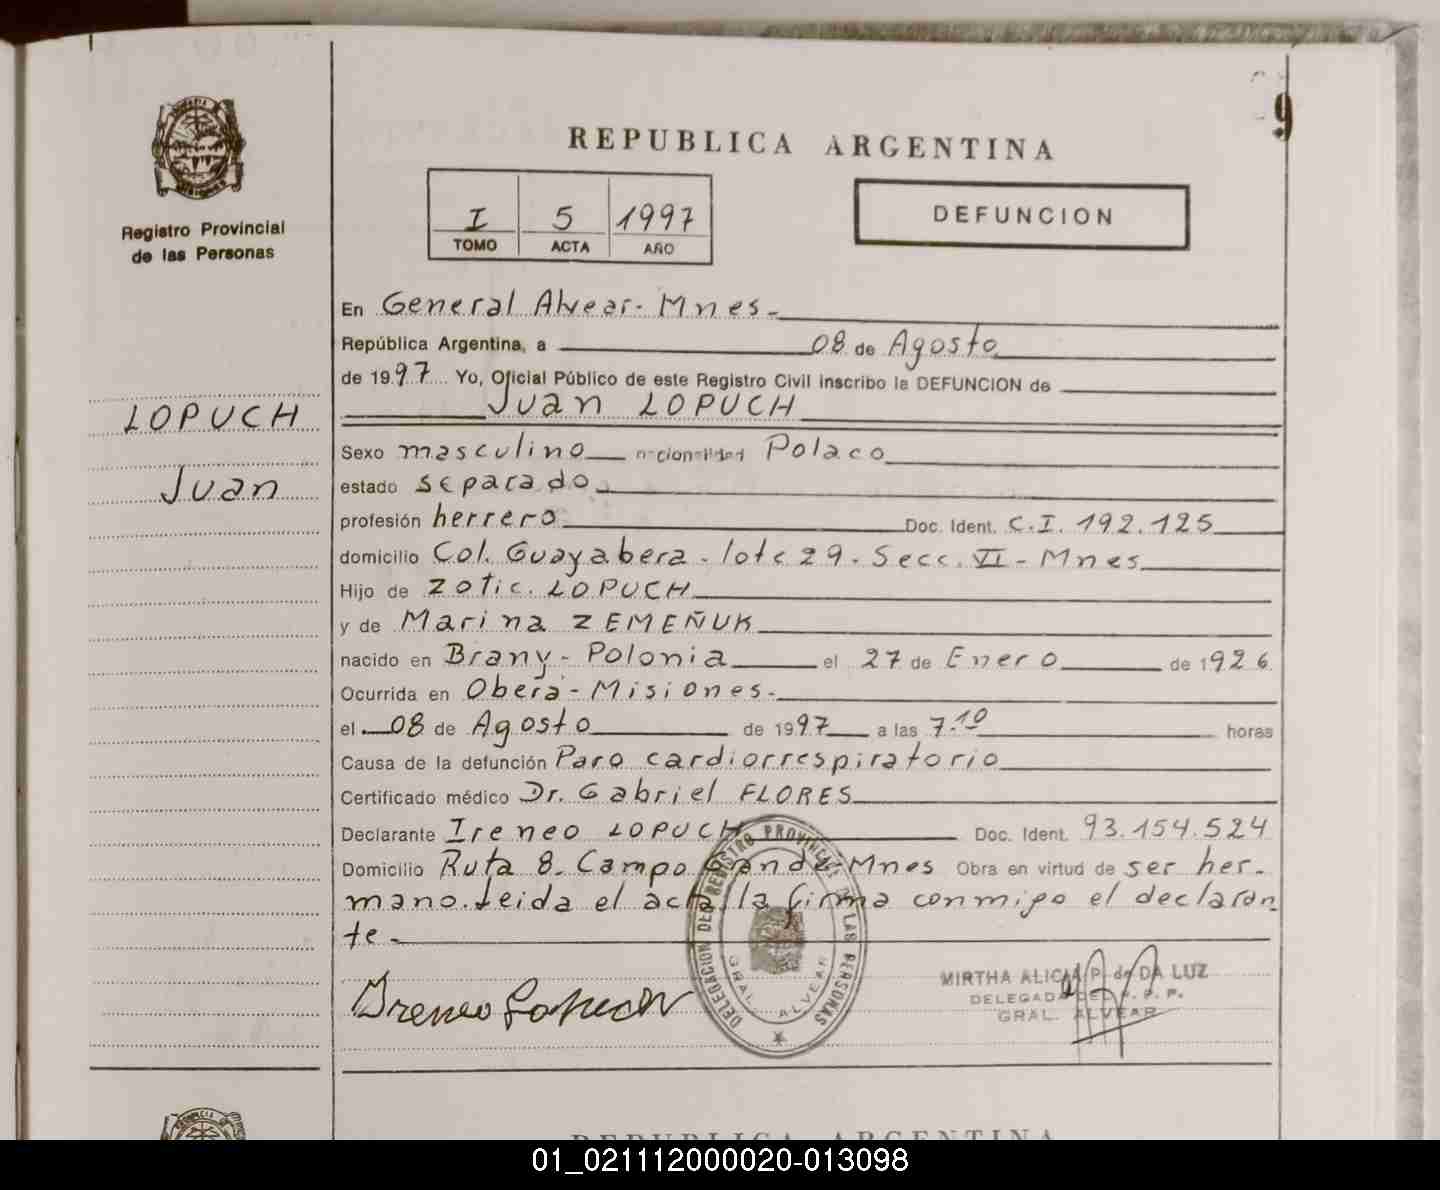 9
REPUBLICA ARGENTINA
Registro Provincial
de las Personas
I 5 1997
TOMO ACTA AÑO
DEFUNCION
LOPUCH
Juan
En General Alvear - Mnes -
República Argentina, a 08 de Agosto
de 1997 Yo, Oficial Público de este Registro Civil inscribo la DEFUNCION de
Juan LOPUCH
Sexo masculino nacionalidad Polaco
estado separado
profesión herrero Doc. Ident. C.I. 192.125
domicilio Col. Guayabera - lote 29 - Secc. VI - Mnes
Hijo de Zotic. LOPUCH
y de Marina ZEMEÑUK
nacido en Brany - Polonia el 27 de Enero de 1926
Ocurrida en Oberá - Misiones -
el 08 de Agosto de 1997 a las 7.10 horas
Causa de la defunción Paro cardiorrespiratorio
Certificado médico Dr. Gabriel FLORES
Declarante Ireneo LOPUCH Doc. Ident. 93.154.524
Domicilio Ruta 8. Campo Grande Mnes Obra en virtud de ser her-
mano. Leida el acta la firma conmigo el declaran
te -
Ireneo Lopuch
DELEGACION DEL REGISTRO PROVINCIAL DE LAS PERSONAS
GRAL. ALVEAR
MIRTHA ALICIA P. de DA LUZ
DELEGADA DEL R. P. P.
GRAL. ALVEAR
REPUBLICA ARGENTINA
01_021112000020-013098